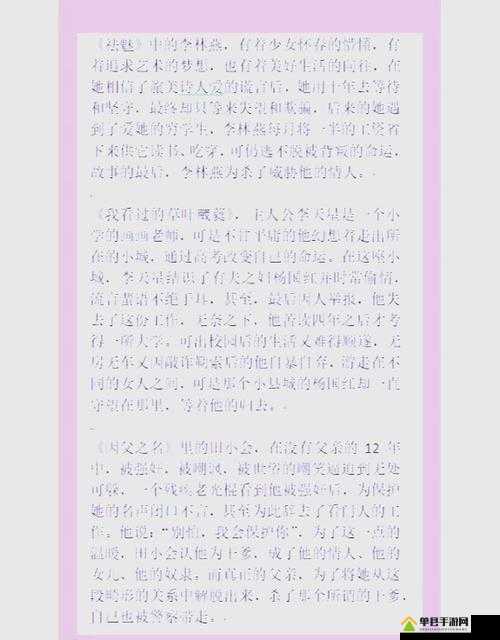 《祛魅》中的李林燕，有着少女怀春的懵懂，有
着追求艺术的梦想，也有着美好生活的向往，在
她相信了旅美诗人爱的谎言后，她用十年去等待
和坚守，最终却只等来失望和欺骗，后来的她遇
到了爱她的穷学生，李林燕每月将一半的工资省
下来供它读书、吃穿，可仍逃不脱被背叛的命运，
故事的最后，李林燕为杀了威胁他的情人。
《我看过的草叶葳蕤》，主人公李天星是一个小
学的画画老师，可是不甘平庸的他幻想着走出所
在的小城，通过高考改变自己的命运。在这座小
城，李天星结识了有夫之妇杨国红并时常偷情，
流言蜚语不绝于耳，甚至，最后因人举报，他失
去了这份工作，无奈之下，他苦读四年之后才考
得一所大学。可出校园后的生活又难得顺遂，无
房无车又因敲诈勒索后的他自暴自弃，游走在不
同的女人之间，可是那个小县城的杨国红却一直
守望在那里，等着他的归去。
《因父之名》里的田小会，在没有父亲的 12 年
中，被强奸，被嘲讽，被世俗的嘲笑逼迫到无处
可躲，一个残疾老光棍看到他被强奸后，为保护
她的名声闭口不言，甚至为此辞去了看门人的工
作。他说：“别怕，我会保护你”，为了这一点的
温暖，田小会认他为干爹，成了他的情人、他的
女儿、他的奴隶。而真正的父亲，为了将她从这
段畸形的关系中解脱出来，杀了那个所谓的干爹，
自己也被警察带走。
单县手游网